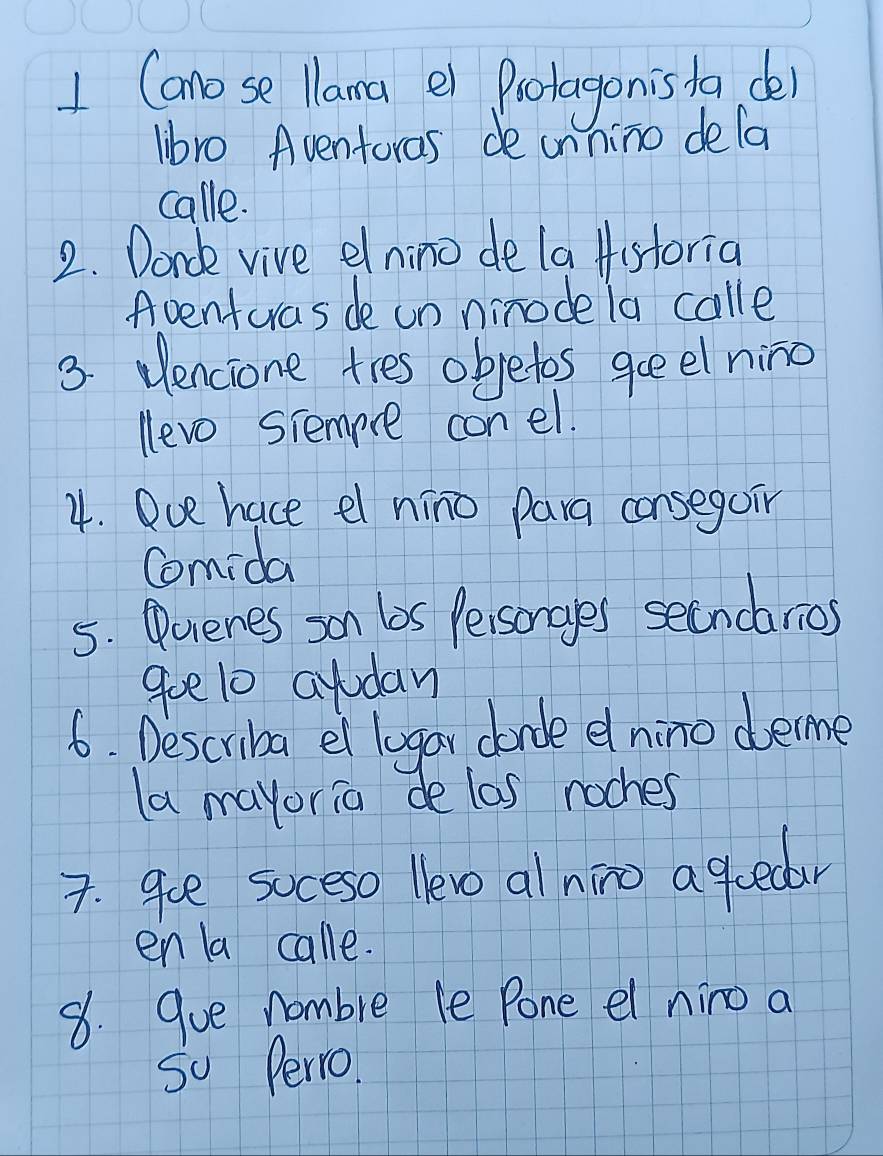 1 Como se llama el Protagonista del
libro Aventuras de un nino de la
calle.
2. Donde vive el nino de la Historia
Aventuras de un nino de la calle
3. Mencione tres objetos que el nino
llevo siempre con el.
4. Que hace el nino Para conseguir
Comida
5. Quienes son los Personajes secundarios
que lo ayudan
6. Describa el lugar donde el nino duerme
la mayoria de las noches
7. que suceso llevo al nino a quedar
en la calle.
8. que nombre le Pone el nino a
su Perro.